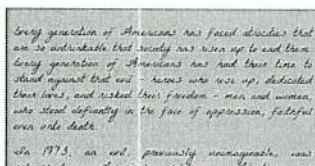 Every generation of Americans has faced atrocities that
are so unthinkable that society has risen up to end them.
Every generation of Americans has had their time to
stand against that evil - heroes who rose up, dedicated
their lives, and risked their freedom - men and women,
who stood defiantly in the face of oppression, faithful
even unto death.
In 1973, an evil, previously unimaginable, was